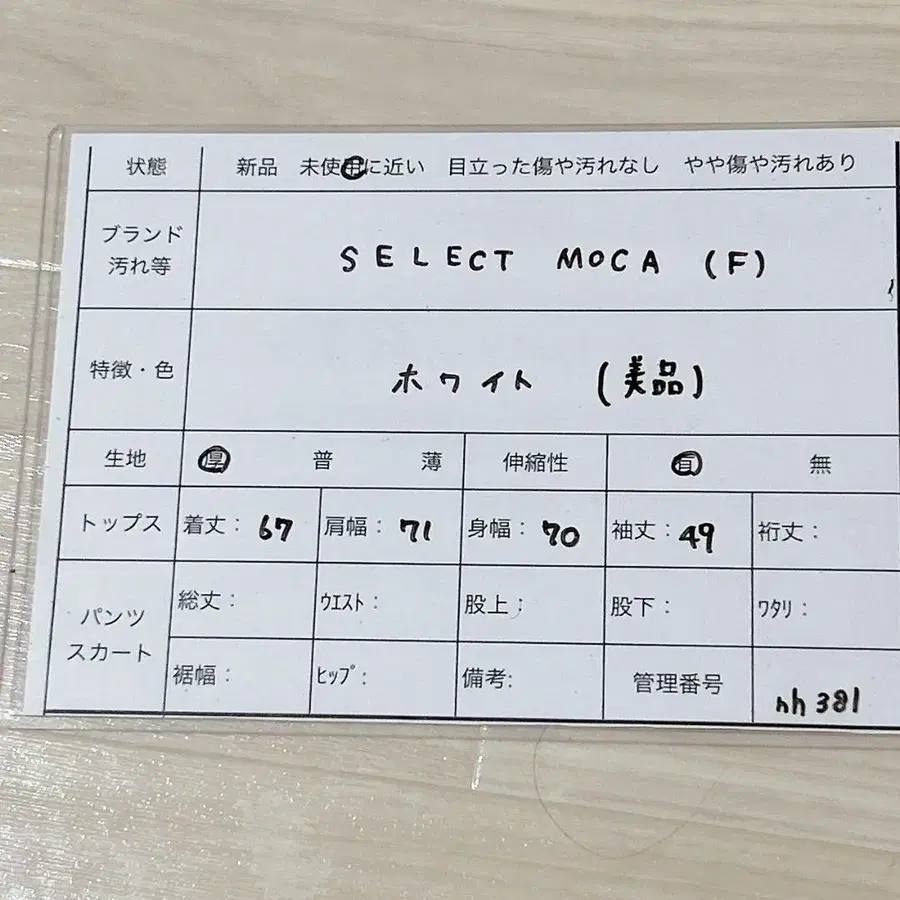 状態 新品 未使用に近い 目立った傷や汚れなし やや傷や汚れあり
ブランド
汚れ等
SELECT MOCA (F)
特徴・色 ホワイト (美品)
生地 厚 普 薄 伸縮性 有 無
トップス 着丈: 67 肩幅: 71 身幅: 70 袖丈: 49 裄丈:
パンツ
スカート
総丈: ウエスト: 股上; 股下: ワタリ:
裾幅: ヒップ: 備考: 管理番号 hh381